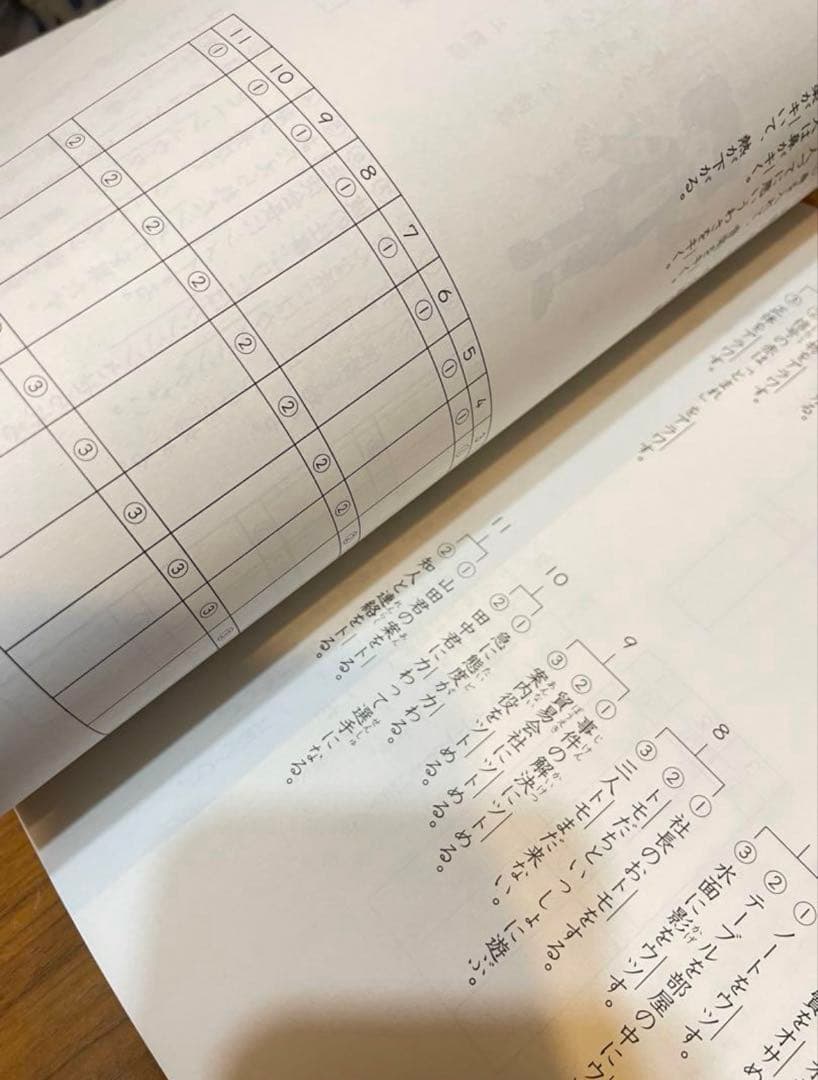 11 10 9 8 7 6 5 4 3
① ① ① ① ① ① ① ①
② ② ② ② ② ② ② ②
③ ③ ③ ③ ③
熱が下がる。
① ノートをウツす。
② テーブルを部屋の中にウ
③ 水面に影をウツす。
8
① 社長のおトモをする。
② トモだちといっしょに遊ぶ。
③ 三人トモまだ来ない。
9
① 事件の解決にツトめる。
② 貿易会社にツトめる。
③ 案内役をツトめる。
10
① 急に態度がカわる。
② 田中君にカわって選手になる。
11
① 山田君の案をトる。
② 知人と連絡をトる。